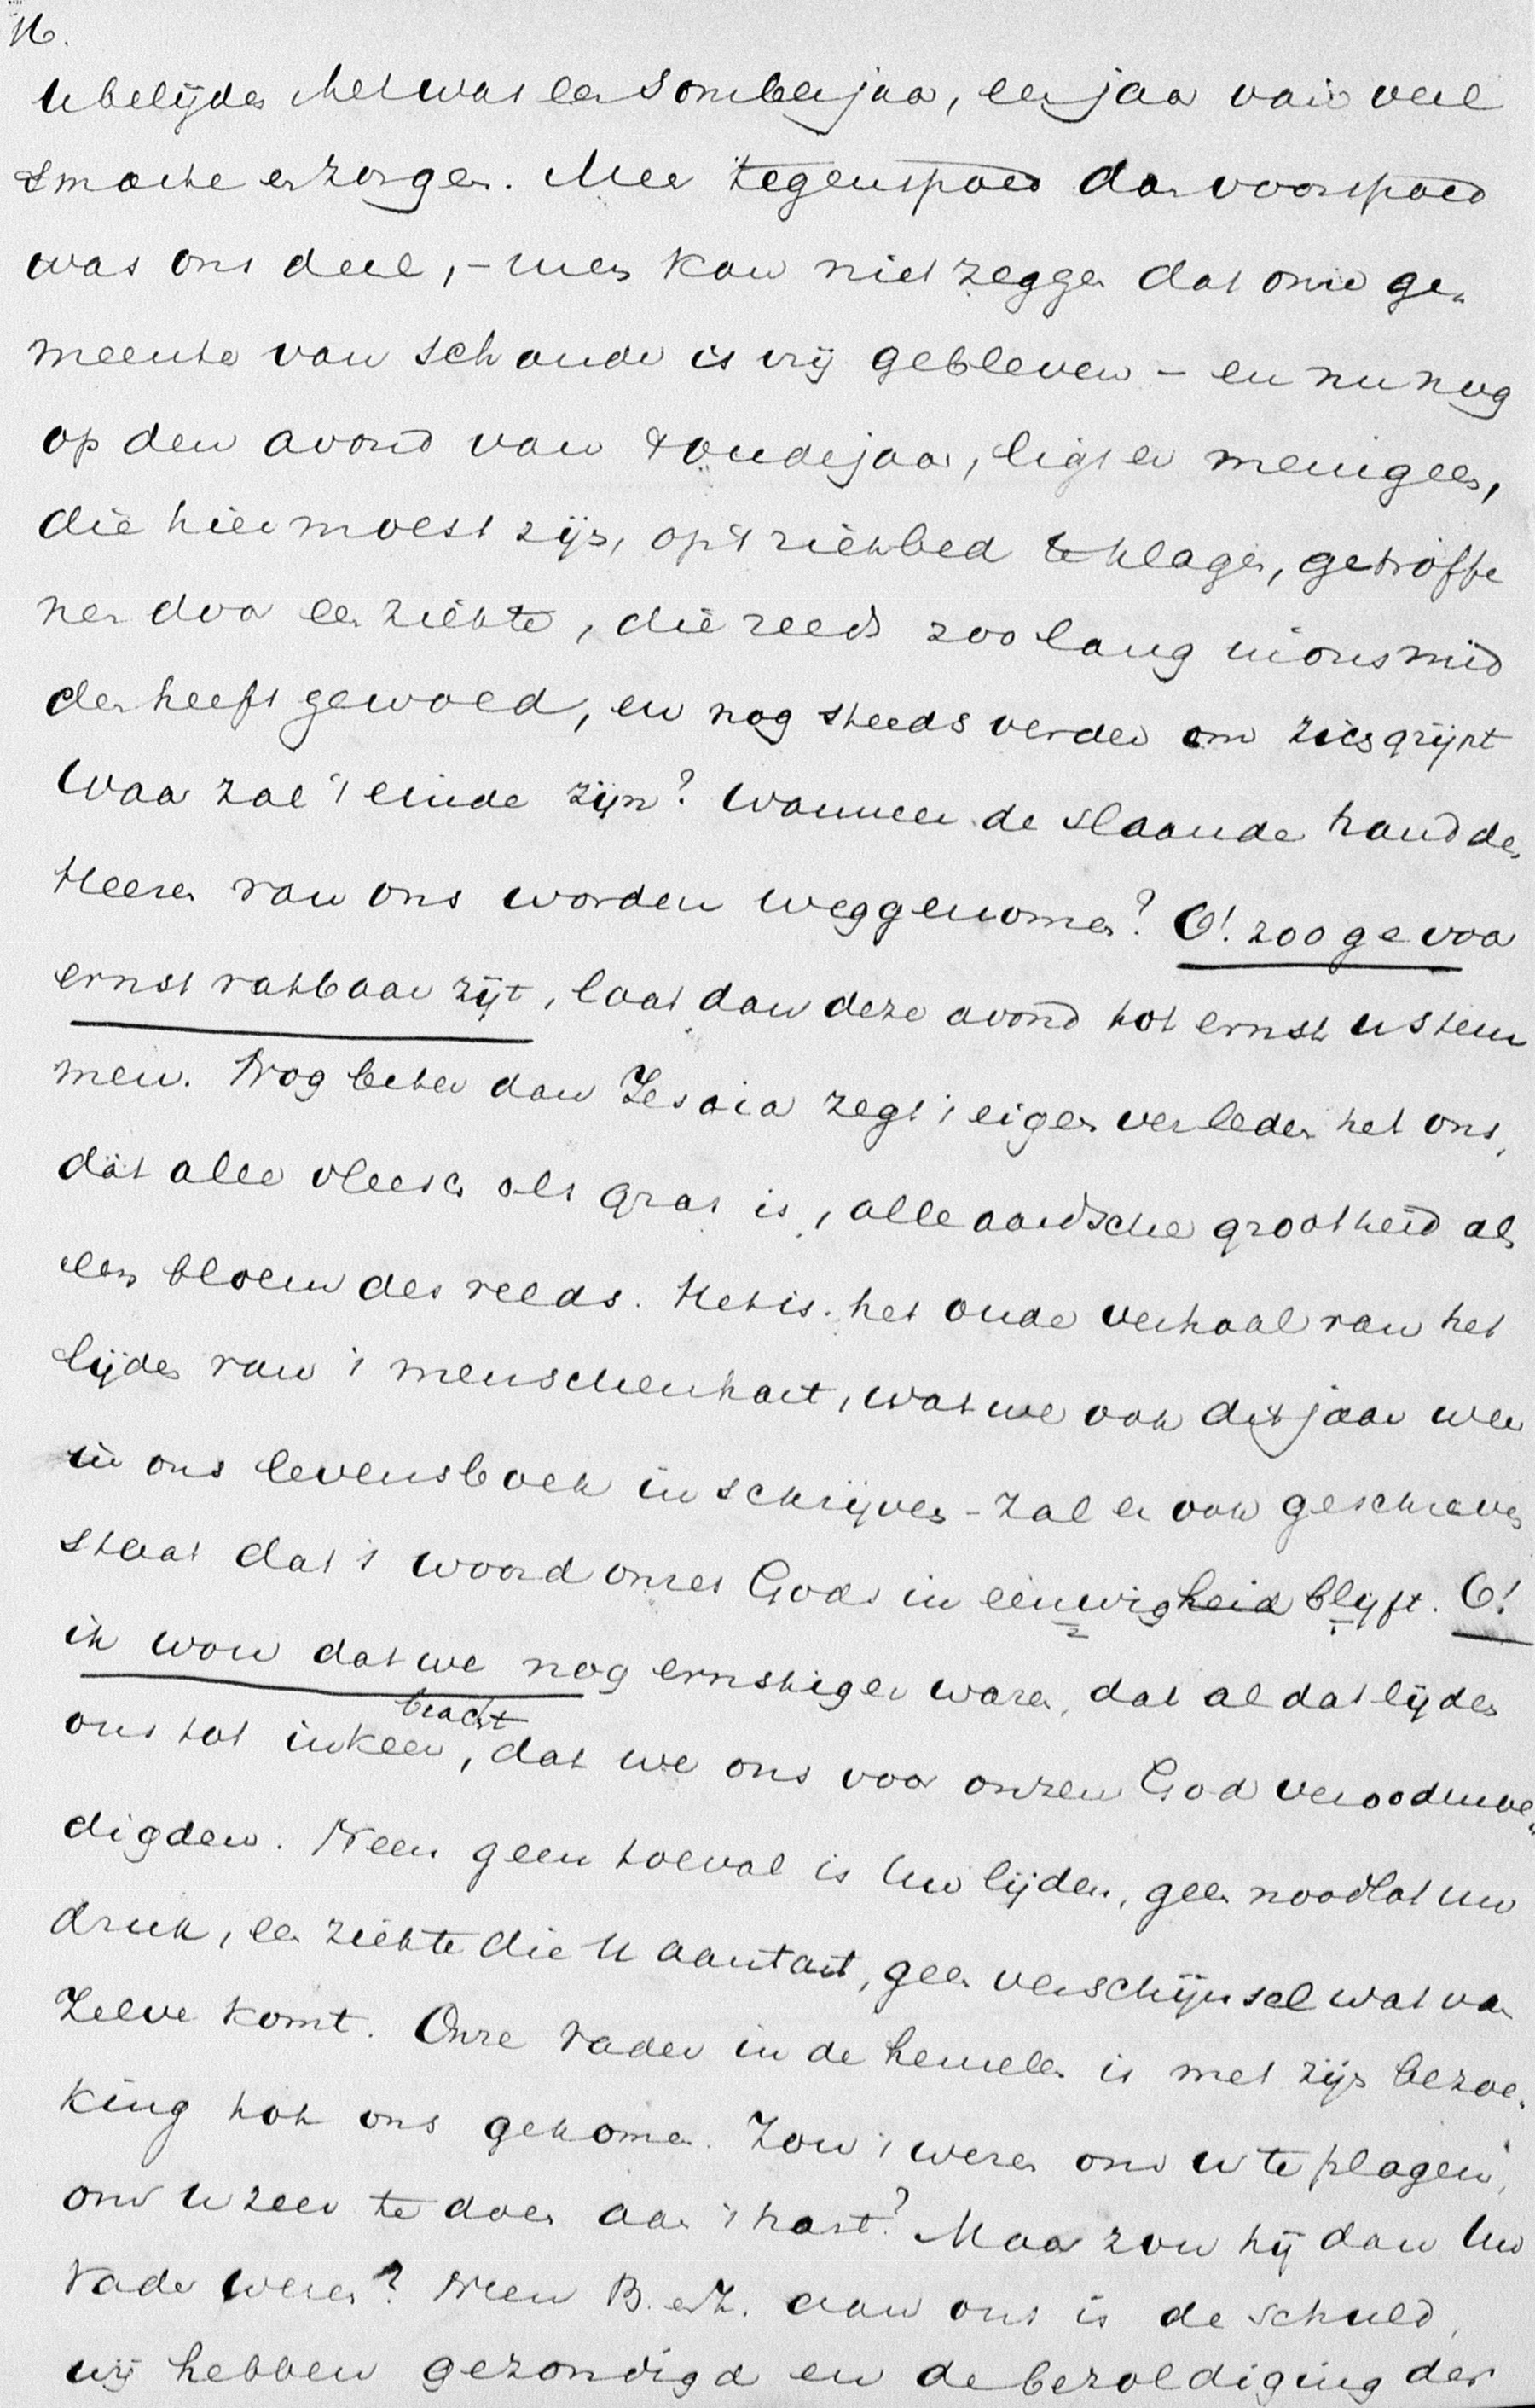 16.
U belijden het was een somber jaar, een jaar van veel
smarte en zorgen. Meer tegenspoed dan voorspoed
was ons deel, - men kan niet zeggen dat onze ge-
meente van schande is vrij gebleven - en nu nog
op den avond van 't oudejaar, ligt er menigeen,
die hier moest zijn, op 't ziekbed te klagen, getroffe
nen door een ziekte, die reeds zoo lang in ons mid
den heeft gewoed, en nog steeds verder om zich grijpt
Waar zal 't einde zijn? Wanneer de slaande hand des
Heeren van ons worden weggenomen? O! zoo ge voor
ernst vatbaar zijt, laat dan deze avond tot ernst u stem
men. Nog beter dan Jesaia zegt 't eigen verleden het ons,
dat alle vleesch als gras is, alle aardsche grootheid als
een bloem des velds. Het is het oude verhaal van het
lijden van 't menschenhart, wat we ook dit jaar weer
in ons levensboek inschrijven - zal er ook geschreven
staat dat 't woord onzes Gods in eeuwigheid blijft. O!
ik wou dat we nog ernstiger waren, dat al dat lijden
ons tot inkeer bracht, dat we ons voor onzen God verootmoe-
digden. Neen geen toeval is Uw lijden, geen noodlot uw
druk, een ziekte die U aantast, geen verschijnsel wat van
zelve komt. Onze Vader in de hemelen is met zijn bezoe-
king tot ons gekomen. Zou 't wezen om u te plagen,
om U zeer te doen aan 't hart? Maar zou hij dan Uw
Vader wezen? Neen B. en Z. aan ons is de schuld,
wij hebben gezondigd en de bezoldiging der